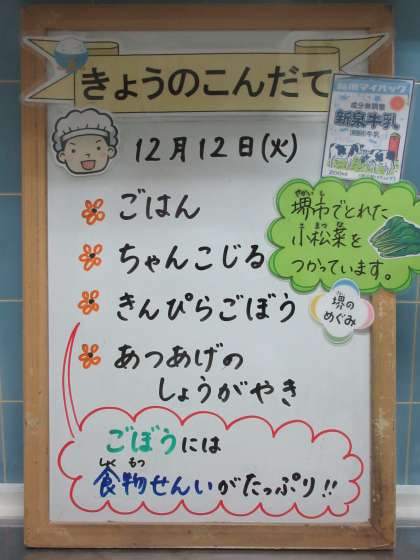 きょうのこんだて
12月12日(火)
ごはん
ちゃんこじる
きんぴらごぼう
あつあげの
しょうがやき
ごぼうには
食物せんいがたっぷり!!
しょく もつ
成分無調整
新泉牛乳
200ml
堺市でとれた
小松菜を
こ まつ な
つかっています。
堺の
めぐみ